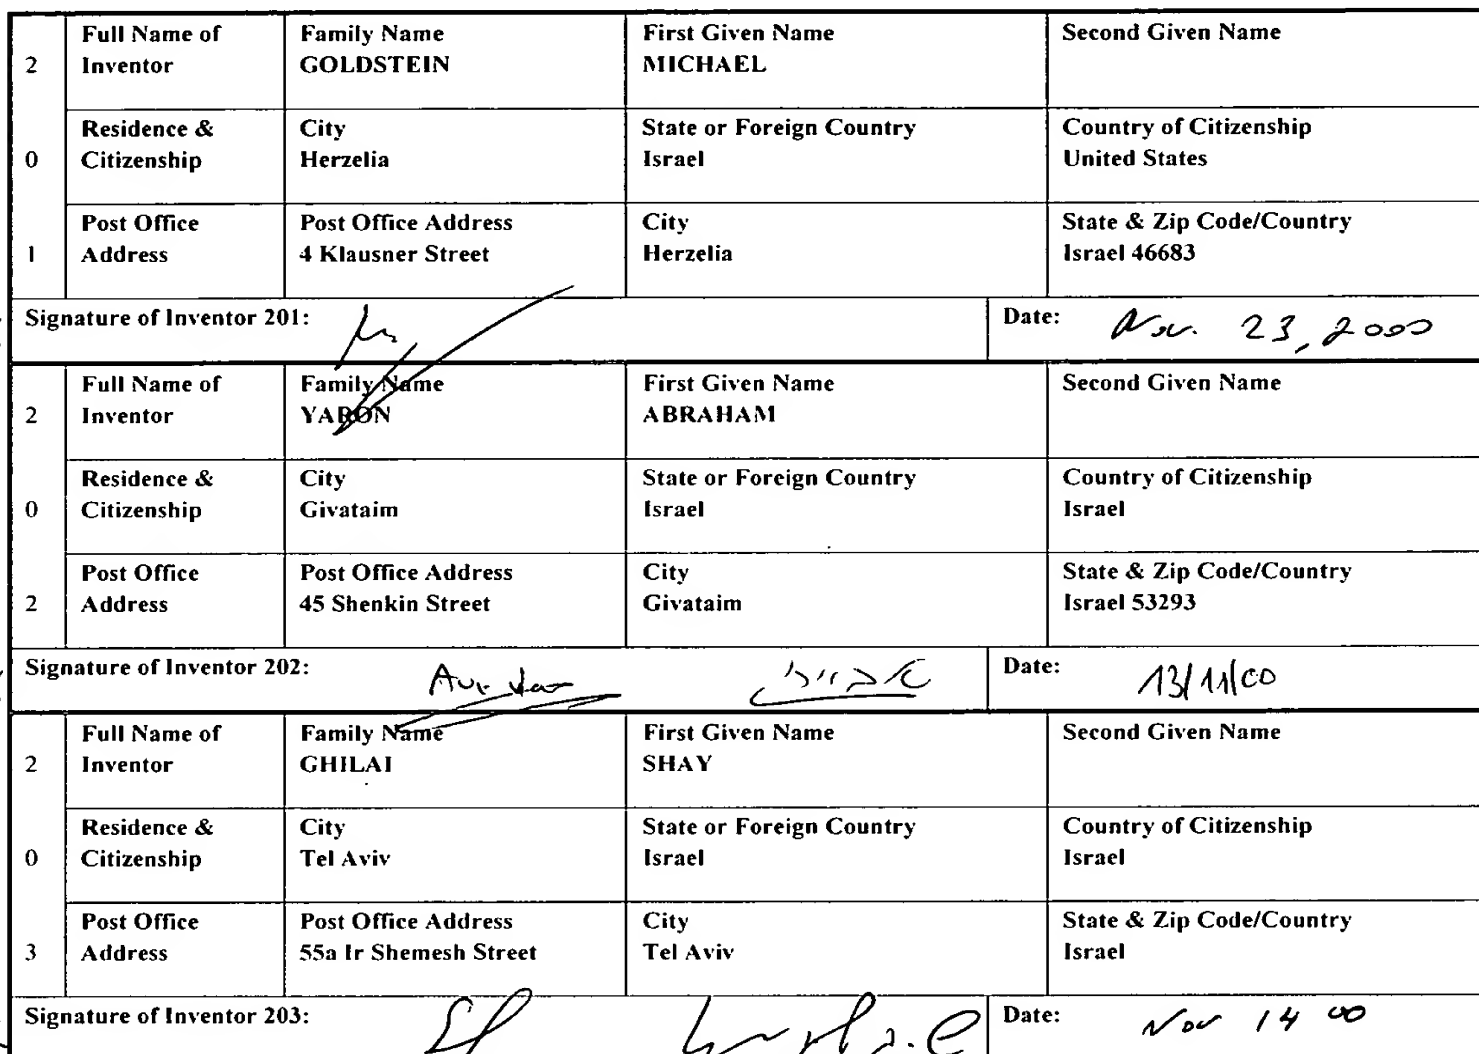 Full Name of Inventor Family Name GOLDSTEIN First Given Name MICHAEL Second Given Name
2
Residence & Citizenship City Herzelia State or Foreign Country Israel Country of Citizenship United States
0
Post Office Address Post Office Address 4 Klausner Street City Herzelia State & Zip Code/Country Israel 46683
1
Signature of Inventor 201: Date: Nov. 23, 2000
Full Name of Inventor Family Name YARON First Given Name ABRAHAM Second Given Name
2
Residence & Citizenship City Givataim State or Foreign Country Israel Country of Citizenship Israel
0
Post Office Address Post Office Address 45 Shenkin Street City Givataim State & Zip Code/Country Israel 53293
2
Signature of Inventor 202: Date: 13/11/00
Full Name of Inventor Family Name GHILAI First Given Name SHAY Second Given Name
2
Residence & Citizenship City Tel Aviv State or Foreign Country Israel Country of Citizenship Israel
0
Post Office Address Post Office Address 55a Ir Shemesh Street City Tel Aviv State & Zip Code/Country Israel
3
Signature of Inventor 203: Date: Nov 14 00